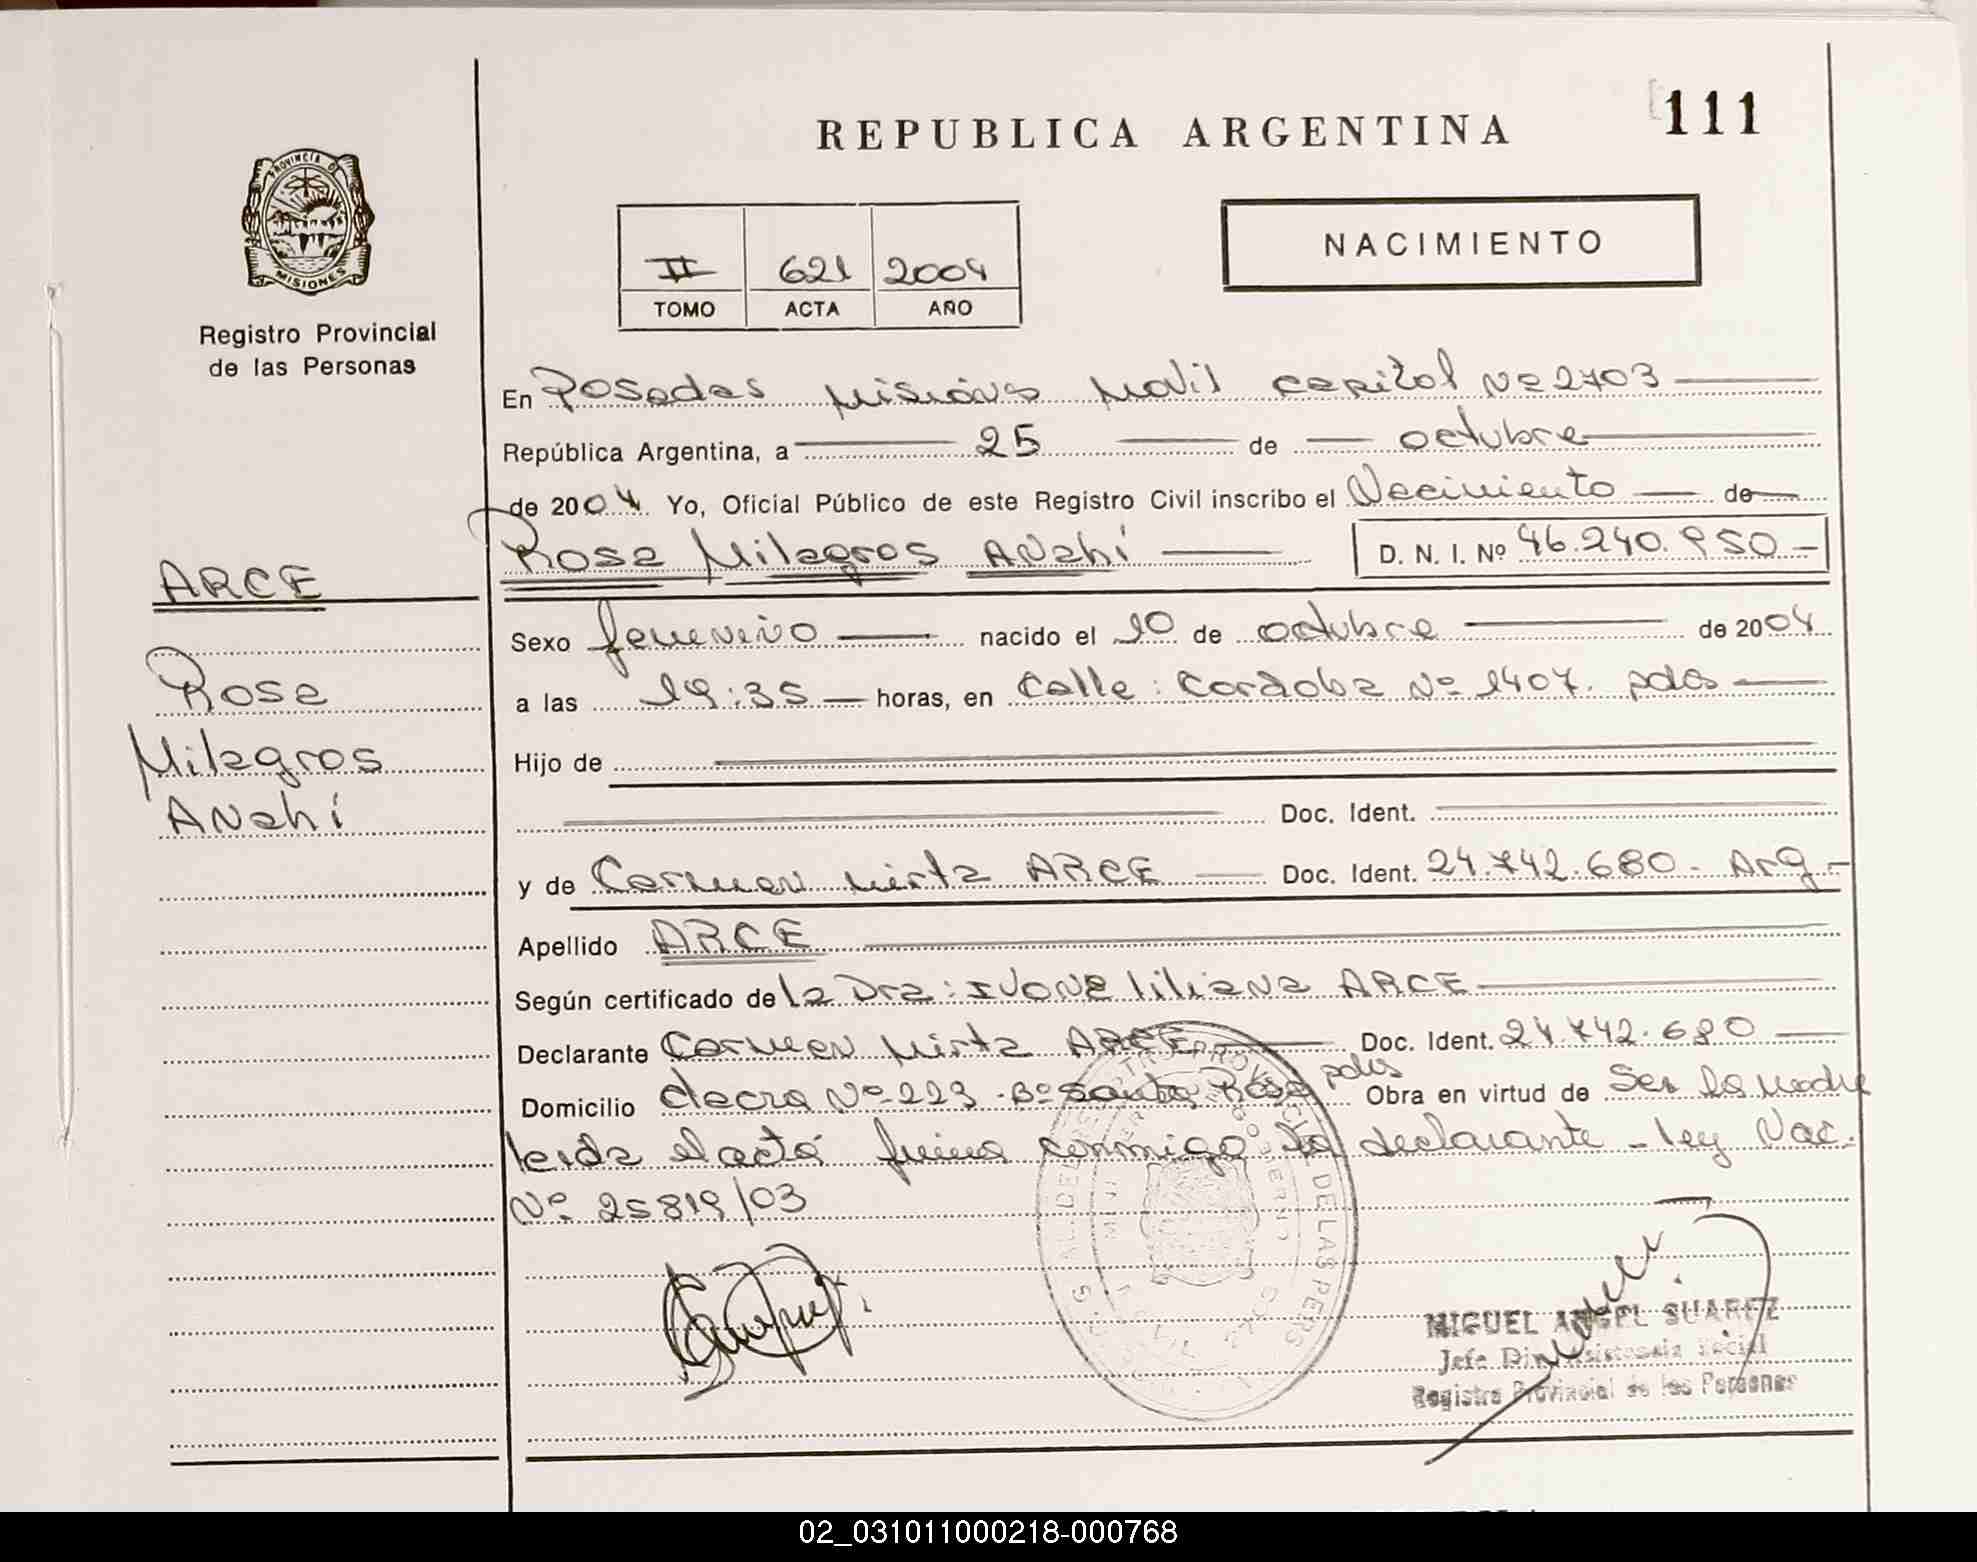 REPUBLICA ARGENTINA
111
PROVINCIA DE
MISIONES
Registro Provincial
de las Personas
NACIMIENTO
II 621 2004
TOMO ACTA AÑO
En Posadas Misiones Movil capital Nº 2703
República Argentina, a 25 de octubre
de 2004 Yo, Oficial Público de este Registro Civil inscribo el Nacimiento de
Rosa Milagros Anahí D. N. I. Nº 46.240.950
ARCE
Rosa
Milagros
Anahí
Sexo femenino nacido el 10 de octubre de 2004
a las 19:35 horas, en Calle: Cordoba Nº 1407. pdas
Hijo de
Doc. Ident.
y de Carmen Mirta ARCE Doc. Ident. 24.742.680 - Arg.-
Apellido ARCE
Según certificado de la Dra: Ivone liliana ARCE
Declarante Carmen Mirta ARCE Doc. Ident. 24.742.680
Domicilio Nº 223 - Bº Santa Rosa pdas Obra en virtud de Ser la madre
leida el acta firma conmigo la declarante - ley Nac.
Nº 25819/03
MIGUEL ANGEL SUAREZ
Jefe Asistencia Social
Registro Provincial de las Personas
02_031011000218-000768